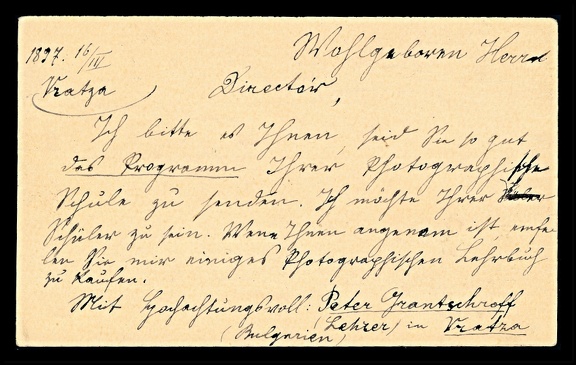 1897. 16/III
Wohlgeboren Herrn
Vratza
Director,
Ich bitte es Ihnen, seid Sie so gut
das Programm Ihrer Photographische
Schule zu senden. Ich möchte Ihrer
Schüler zu sein. Wenn Ihnen angenem ist, emfe-
len Sie mir einiges Photographischen Lehrbuch
zu kaufen.
Mit hochachtungsvoll: Peter Grantscheff
(Lehrer) in Vratza
(Bulgarien)